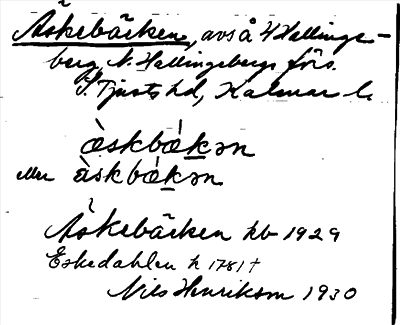 Äskebäcken, avs å Hallings-
berg, N. Hallingebergs förs.
S. Tjusts hd, Kalmar l.
æ̀skbǽkən
eller àskbǽkən
Äskebäcken hb 1929
Eskedahlen h 1781 †
Nils Henrikson 1930